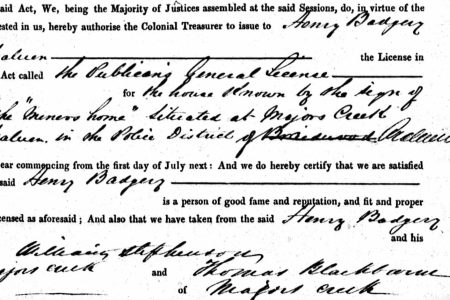 said Act, We, being the Majority of Justices assembled at the said Sessions, do, in virtue of the
ested in us, hereby authorise the Colonial Treasurer to issue to Henry Badgery
the License in
Act called the Publicans General License
for the house known by the sign of
the "Miners home" Situated at Majors Creek
in the Police District of Braidwood
ear commencing from the first day of July next: And we do hereby certify that we are satisfied
said Henry Badgery
is a person of good fame and reputation, and fit and proper
censed as aforesaid; And also that we have taken from the said Henry Badgery
and his
William Stephenson
ajors Creek and Thomas Blackburne
of Majors Creek